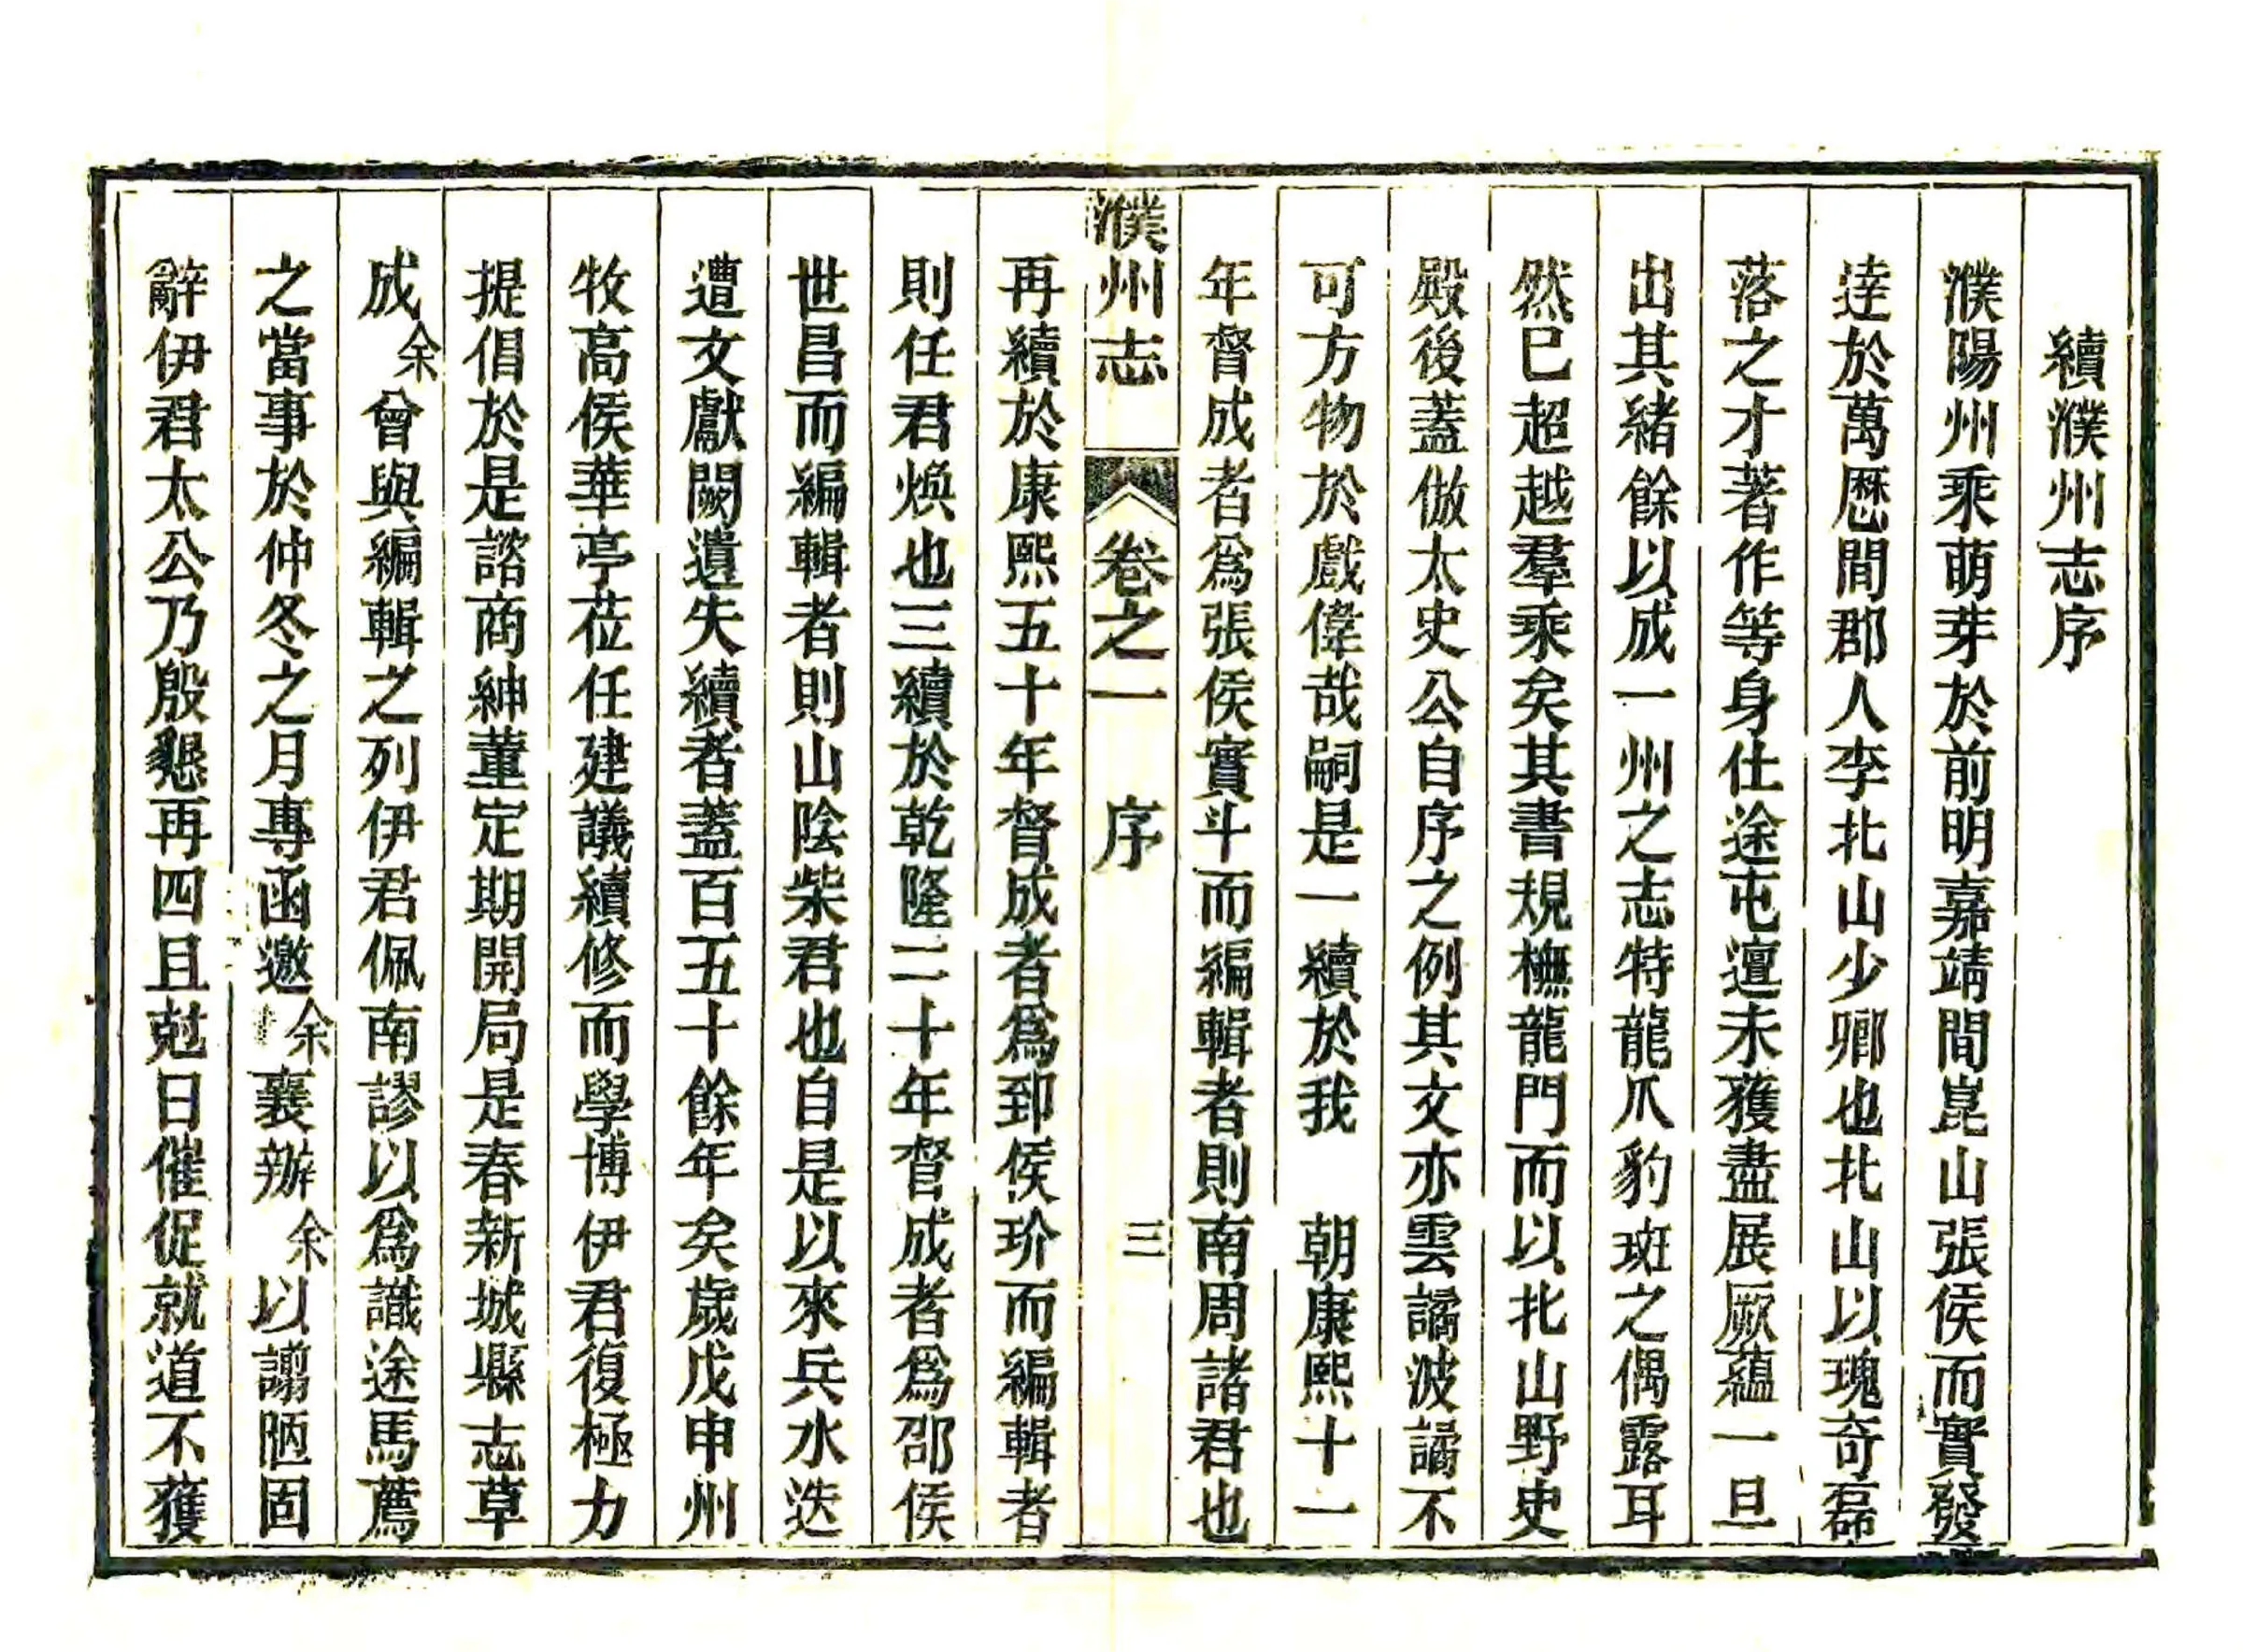 續濮州志序
濮陽州乘萌芽於前明嘉靖間崑山張侯而實發
逹於萬厯間郡人李北山少卿也北山以瑰奇磊
落之才著作等身仕途屯邅未獲盡展厥蘊一旦
出其緒餘以成一州之志特龍爪豹斑之偶露耳
然已超越羣乘矣其書規橅龍門而以北山野史
殿後蓋倣太史公自序之例其文亦雲譎波譎不
可方物於戲偉哉嗣是一續於我 朝康熙十一
年督成者爲張侯實斗而編輯者則南周諸君也
濮州志 卷之一 序 三
再續於康熙五十年督成者爲郅侯玠而編輯者
則任君煥也三續於乾隆二十年督成者爲邵侯
世昌而編輯者則山陰柴君也自是以來兵水迭
遭文獻闕遺失續者蓋百五十餘年矣歲戊申州
牧高侯華亭莅任建議續修而學博伊君復極力
提倡於是諮商紳董定期開局是春新城縣志草
成余曾與編輯之列伊君佩南謬以爲識途馬薦
之當事於仲冬之月專函邀余襄辦余以謭陋固
辭伊君太公乃殷懇再四且尅日催促就道不獲